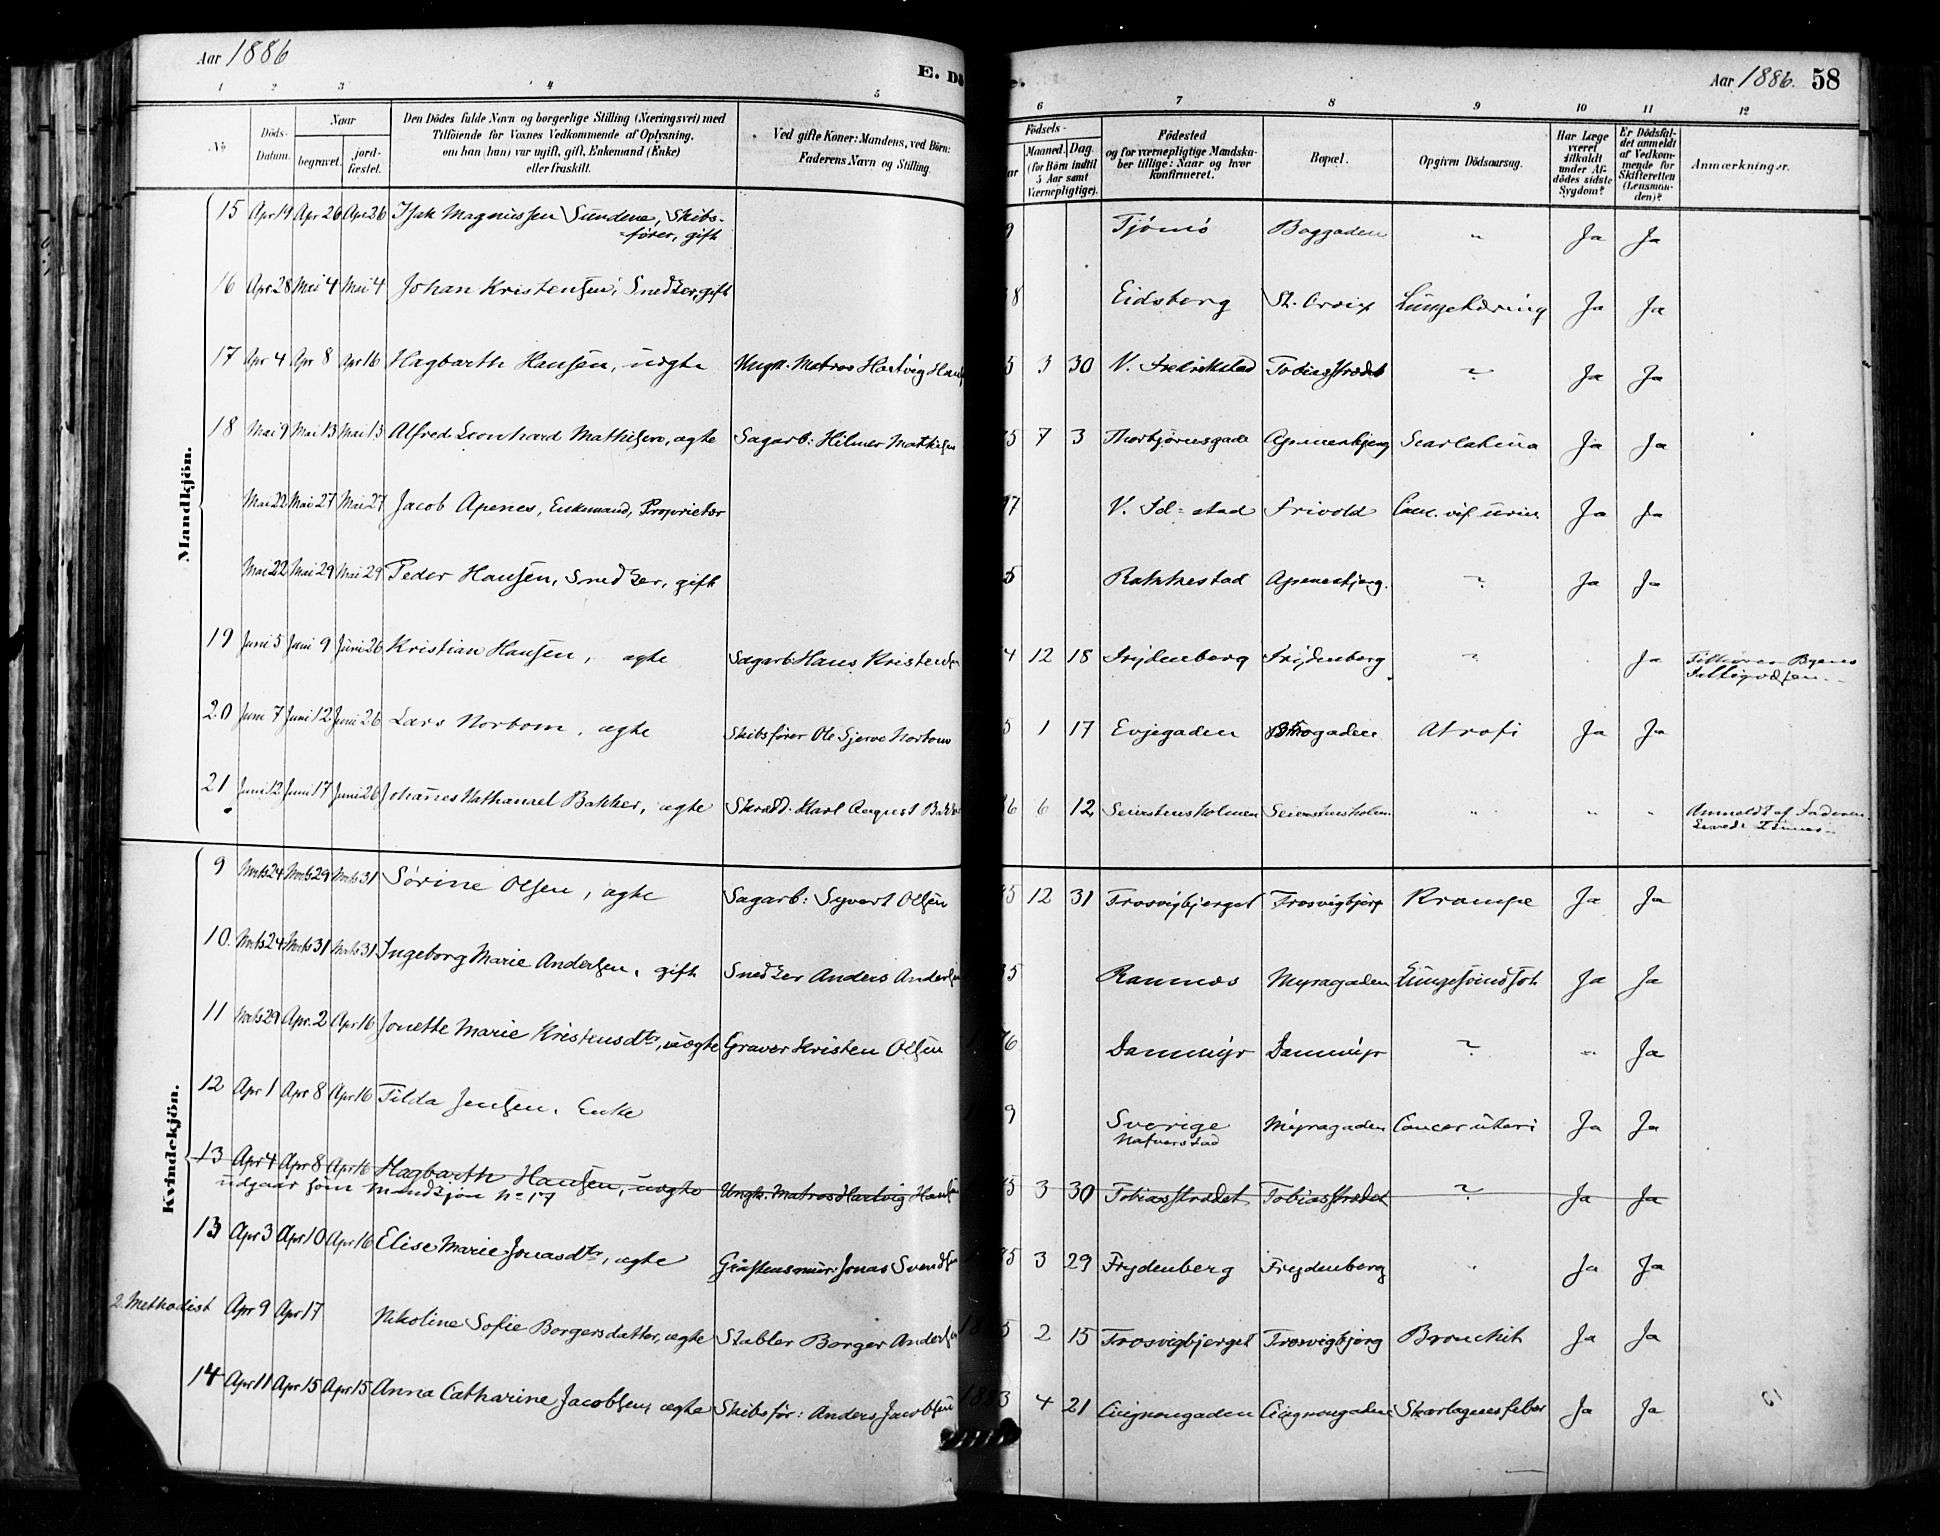 Aar 1886
E. Dö
Aar 1886. 58
1 2 3 4 5 6 7 8 9 10 11 12
No
Döds-Datum.
Naar
begravet.
jord-fæstet.
Den Dödes fulde Navn og borgerlige Stilling (Næringsvei) med
Tilföiende for Voxnes Vedkommende af Oplysning,
om han (hun) var ugift, gift, Enkemand (Enke)
eller fraskilt.
Ved gifte Koner: Mandens, ved Börn:
Faderens Navn og Stilling.
Födsels-
Maaned. Dag.
(for Börn indtil
5 Aar samt
Værnepligtige).
Födested
og for værnepligtige Mandska-
ber tillige: Naar og hvor
konfirmeret.
Bopæl.
Opgiven Dödsaarsag.
Har Læge
været
tilkaldt
under Af-
dödes sidste
Sygdom?
Er Dödsfal-
det anmeldt
af Vedkom-
mende for
Skifteretten
(Lensman-
den)?
Anmærkninger.
Mandkjön.
15 Apr 19 Apr 26 Apr 26 Isak Magnussen Sundene, Skibs-
fører, gift 9 Tjømø Baggaden " Ja Ja
16 Apr 28 Mai 4 Mai 4 Johan Kristensen, Snedker, gift 8 Eidsberg St. Croix Lungetæring Ja Ja
17 Apr 4 Apr 8 Apr 16 Hagbarth Hansen, uægte Ungk. Matros Hartvig Hans 5 3 30 V. Fredrikstad Tobiasstrædet ? Ja Ja
18 Mai 9 Mai 13 Mai 13 Alfred Leonhard Mathisen, ægte Sagarb: Hilmer Mathisen 5 7 3 Thorbjørnsgade Apenesbjerg Scarlatina Ja Ja
Mai 22 Mai 27 Mai 27 Jacob Apenes, Enkemand, Proprietær 7 V. Fd=stad Frivold Ja Ja
Mai 22 Mai 29 Mai 29 Peder Hansen, Snedker, gift 5 Rakkestad Apenesbjerg. ? Ja Ja
19 Juni 5 Juni 9 Juni 26 Kristian Hansen, ægte Sagarb Hans Kristensen 4 12 18 Frydenberg Frydenberg ? Ja Tilhører Byens
Fattigvæsen.
20 Juni 7 Juni 12 Juni 26 Lars Norbom, ægte Skibsfører Ole Sjerve Norbom 5 1 17 Evjegaden Brogaden Atrofi Ja Ja
21 Juni 12 Juni 17 Juni 26 Johannes Nathanael Bakker, ægte Skræd: Karl August Bakke 6 6 12 Seierstensholmen Seierstensholm " " " Anmeldt af Faderen
Levede Timer
Kvindekjön.
9 Marts 24 Marts 29 Marts 31 Sørine Olsen, ægte Sagarb: Syvert Olsen 5 12 31 Trosvigbjerget Trosvigbjerg Krampe Ja Ja
10. Marts 24 Marts 31 Marts 31 Ingeborg Marie Andersen, gift Snedker Anders Andersen 5 Ramnæs Myragaden Lungesvindsot Ja Ja
11 Marts 29 Apr. 2 Apr 16 Jonette Marie Kristensdtr, uægte Graver Kristen Olsen 6 Dammyr Dammyr ? " Ja
12 Apr 1 Apr 8 Apr 16 Tilda Jensen, Enke 9 Sverige
Nafverstad Myragaden Cancer uteri Ja Ja
13 Apr 4 Apr 8 Apr 16 Hagbarth Hansen, uægte Ungk. Matros Hartvig Hansen 5 3 30 Tobiasstrædet Tobiasstrædet ? Ja Ja
udgaar som Mandkjøn No 17
13 Apr 3 Apr 10 Apr 16 Elise Marie Jonasdtr, ægte Graastensmur: Jonas Svendsen 5 3 29 Frydenberg Frydenberg " Ja Ja
2. Methodist Apr 9 Apr 17 Nikoline Sofie Borgersdatter, ægte Stabler Borger Andersen 5 2 15 Trosvigbjerget Trosvigbjerg Bronchit Ja Ja
14 Apr 11 Apr 15 Apr 15 Anna Catharine Jacobsen, ægte Skibsfør: Anders Jacobsen 1883 4 21 Cicignongaden Cicignongaden Skarlagensfeber Ja Ja